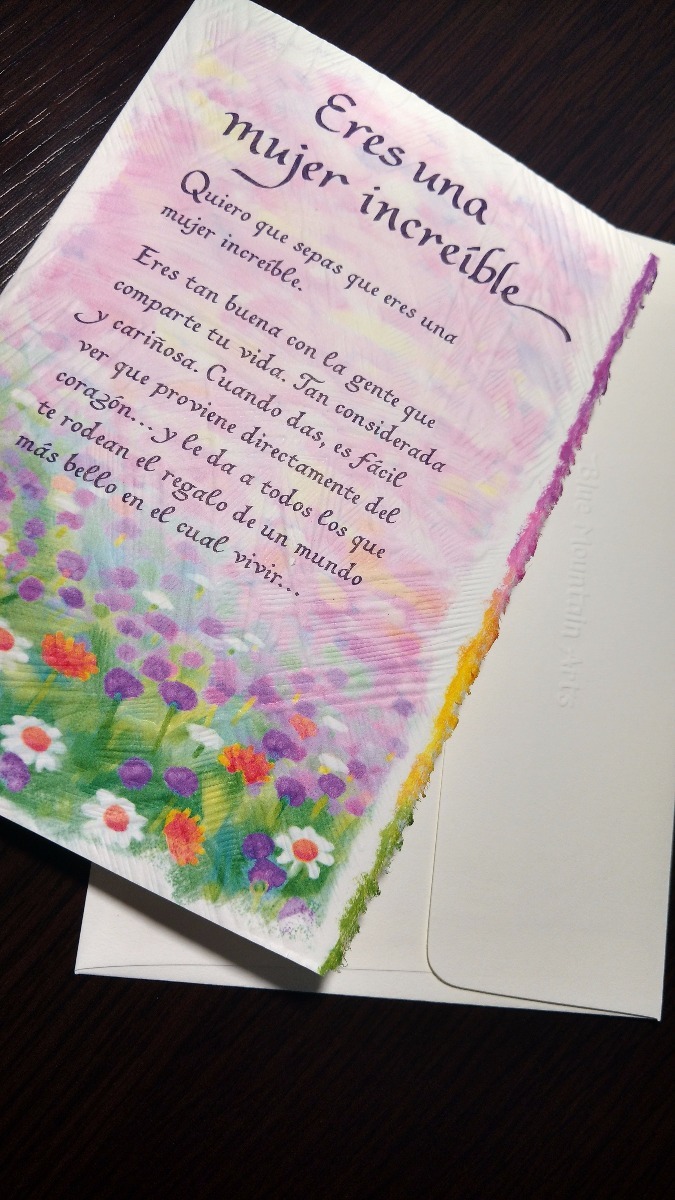 Eres una
mujer increíble
Quiero que sepas que eres una
mujer increíble.
Eres tan buena con la gente que
comparte tu vida. Tan considerada
y cariñosa. Cuando das, es fácil
ver que proviene directamente del
corazón... y le da a todos los que
te rodean el regalo de un mundo
más bello en el cual vivir...
Blue Mountain Arts